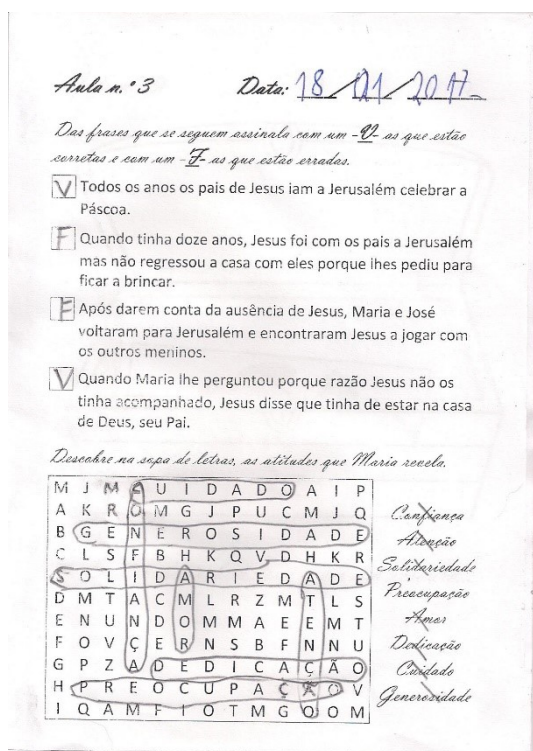 Aula n.º 3 Data: 18/01/2017
Das frases que se seguem assinala com um -V- as que estão
corretas e com um -F- as que estão erradas.
V Todos os anos os pais de Jesus iam a Jerusalém celebrar a
Páscoa.
F Quando tinha doze anos, Jesus foi com os pais a Jerusalém
mas não regressou a casa com eles porque lhes pediu para
ficar a brincar.
F Após darem conta da ausência de Jesus, Maria e José
voltaram para Jerusalém e encontraram Jesus a jogar com
os outros meninos.
V Quando Maria lhe perguntou porque razão Jesus não os
tinha acompanhado, Jesus disse que tinha de estar na casa
de Deus, seu Pai.
Descobre na sopa de letras, as atitudes que Maria revela.
M J M C U I D A D O A I P
A K R O M G J P U C M J Q
B G E N E R O S I D A D E
C L S F B H K Q V D H K R
S O L I D A R I E D A D E
D M T A C M L R Z M T L S
E N U N D O M M A E E M T
F O V Ç E R N S B F N N U
G P Z A D E D I C A Ç Ã O
H P R E O C U P A Ç Ã O V
I Q A M F I O T M G O O M
Confiança
Atenção
Solidariedade
Preocupação
Amor
Dedicação
Cuidado
Generosidade